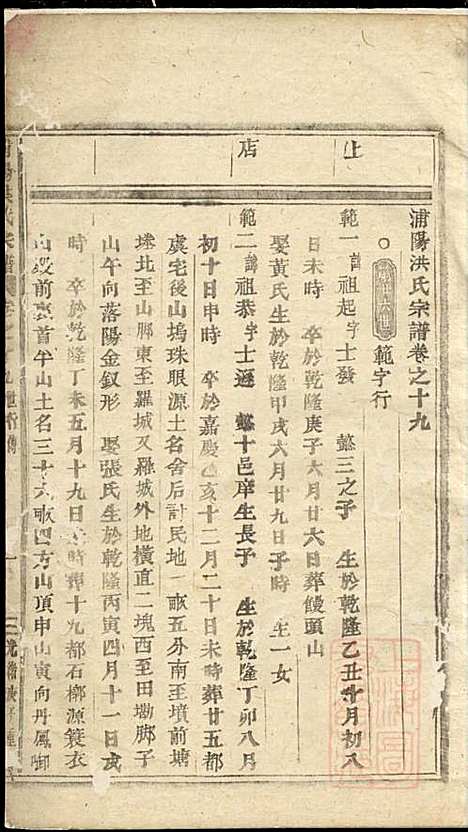 浦陽洪氏宗譜卷之十九
範字行
上
範一諱祖起字士發 懿三之子 生於乾隆乙丑十月初八
日未時 卒於乾隆庚子六月廿六日葬饅頭山
娶黃氏生於乾隆甲戌六月廿九日子時 生一女
店
範二諱祖恭字士遜 懿十邑庠生長子 生於乾隆丁卯八月
初十日申時 卒於嘉慶乙亥十二月二十日未時葬廿五都
虞宅後山塢珠眼源土名舍后計民地一畝五分南至墳前塘
塍北至山脚東至羅城又羅城外地橫直二塊西至田墈脚子
山午向落陽金釵形 娶張氏生於乾隆丙寅四月十一日戌
時 卒於乾隆丁未五月十九日亥時葬十九都石槨源簑衣
山殿前裏首半山土名三十六畝四方山頂申山寅向丹鳳啣